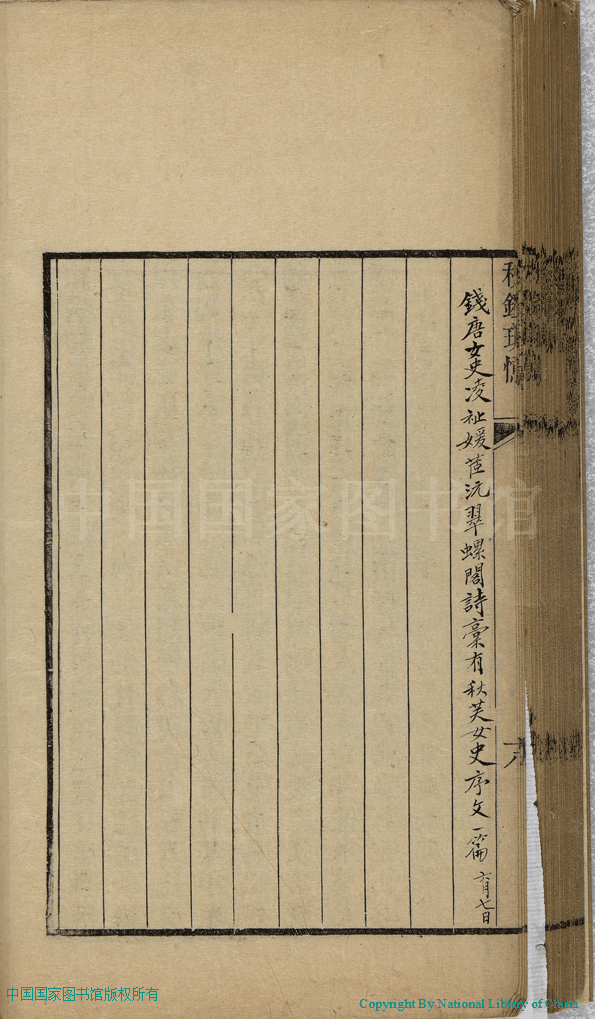 秋鐙瑣憶
六
錢唐女史凌祉媛茞沅翠螺閣詩稾有秋芙女史序文一篇 六月七日
中国国家图书馆
中国国家图书馆版权所有
Copyright By National Library of China